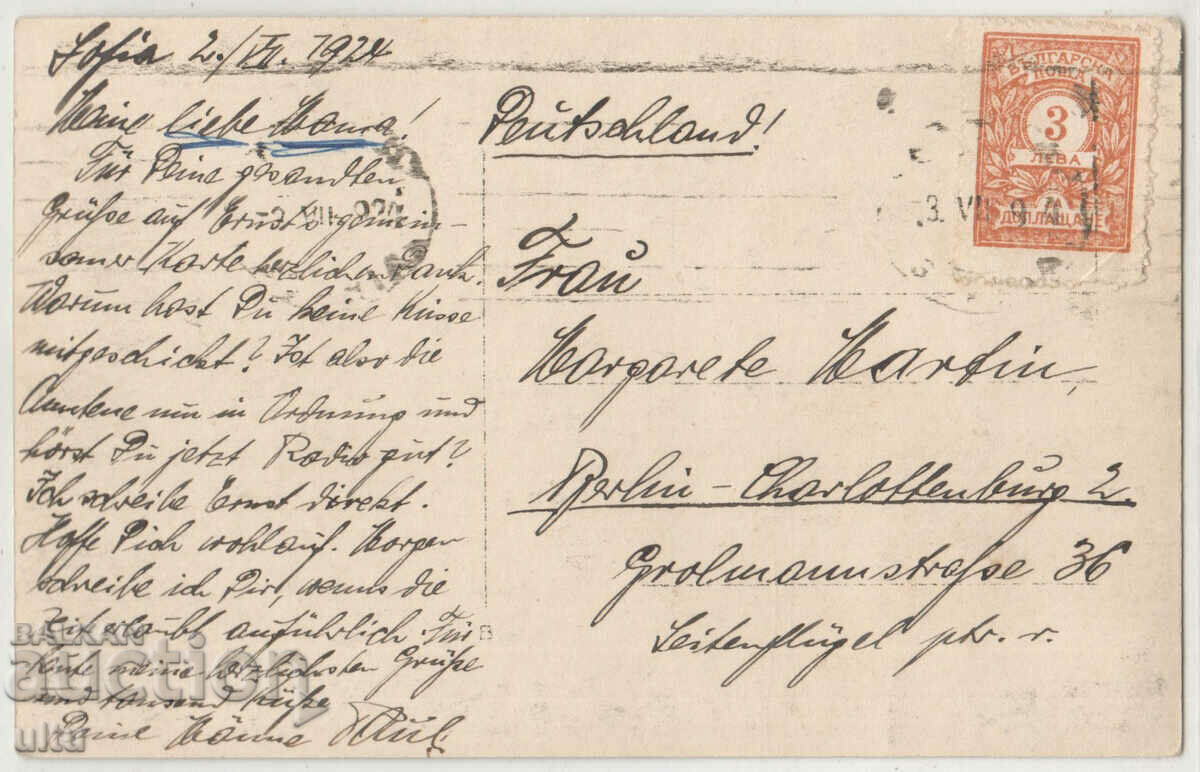 Sofia 2./VII. 1924
Meine liebe Mama!
Für Deine gesandten
Grüße auf Ernst's gemein-
samer Karte herzlichen Dank.
Warum hast Du keine Küsse
mitgeschickt? Ist also die
Antene nun in Ordnung und
hörst Du jetzt Radio gut?
Ich schreibe Ernst direkt.
Hoffe Dich wohlauf. Morgen
schreibe ich Dir, wenns die
Zeit erlaubt ausführlich. Für
heute meine herzlichsten Grüße
und tausend Küße
Deine
Deutschland!
Frau
Margarete Martin,
Berlin - Charlottenburg 2.
Grolmannstraße 36
Seitenflügel ptr. r.
БЪЛГАРСКА
ПОЩА
3
ЛЕВА
ЗА
ДОПЛАЩАНЕ
3. VII
BALKAN
auction
uktu
B